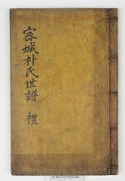 密城朴氏世譜 禮